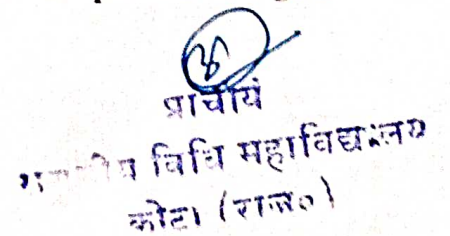 प्राचार्य
विधि महाविद्यालय
कोटा (राज०)